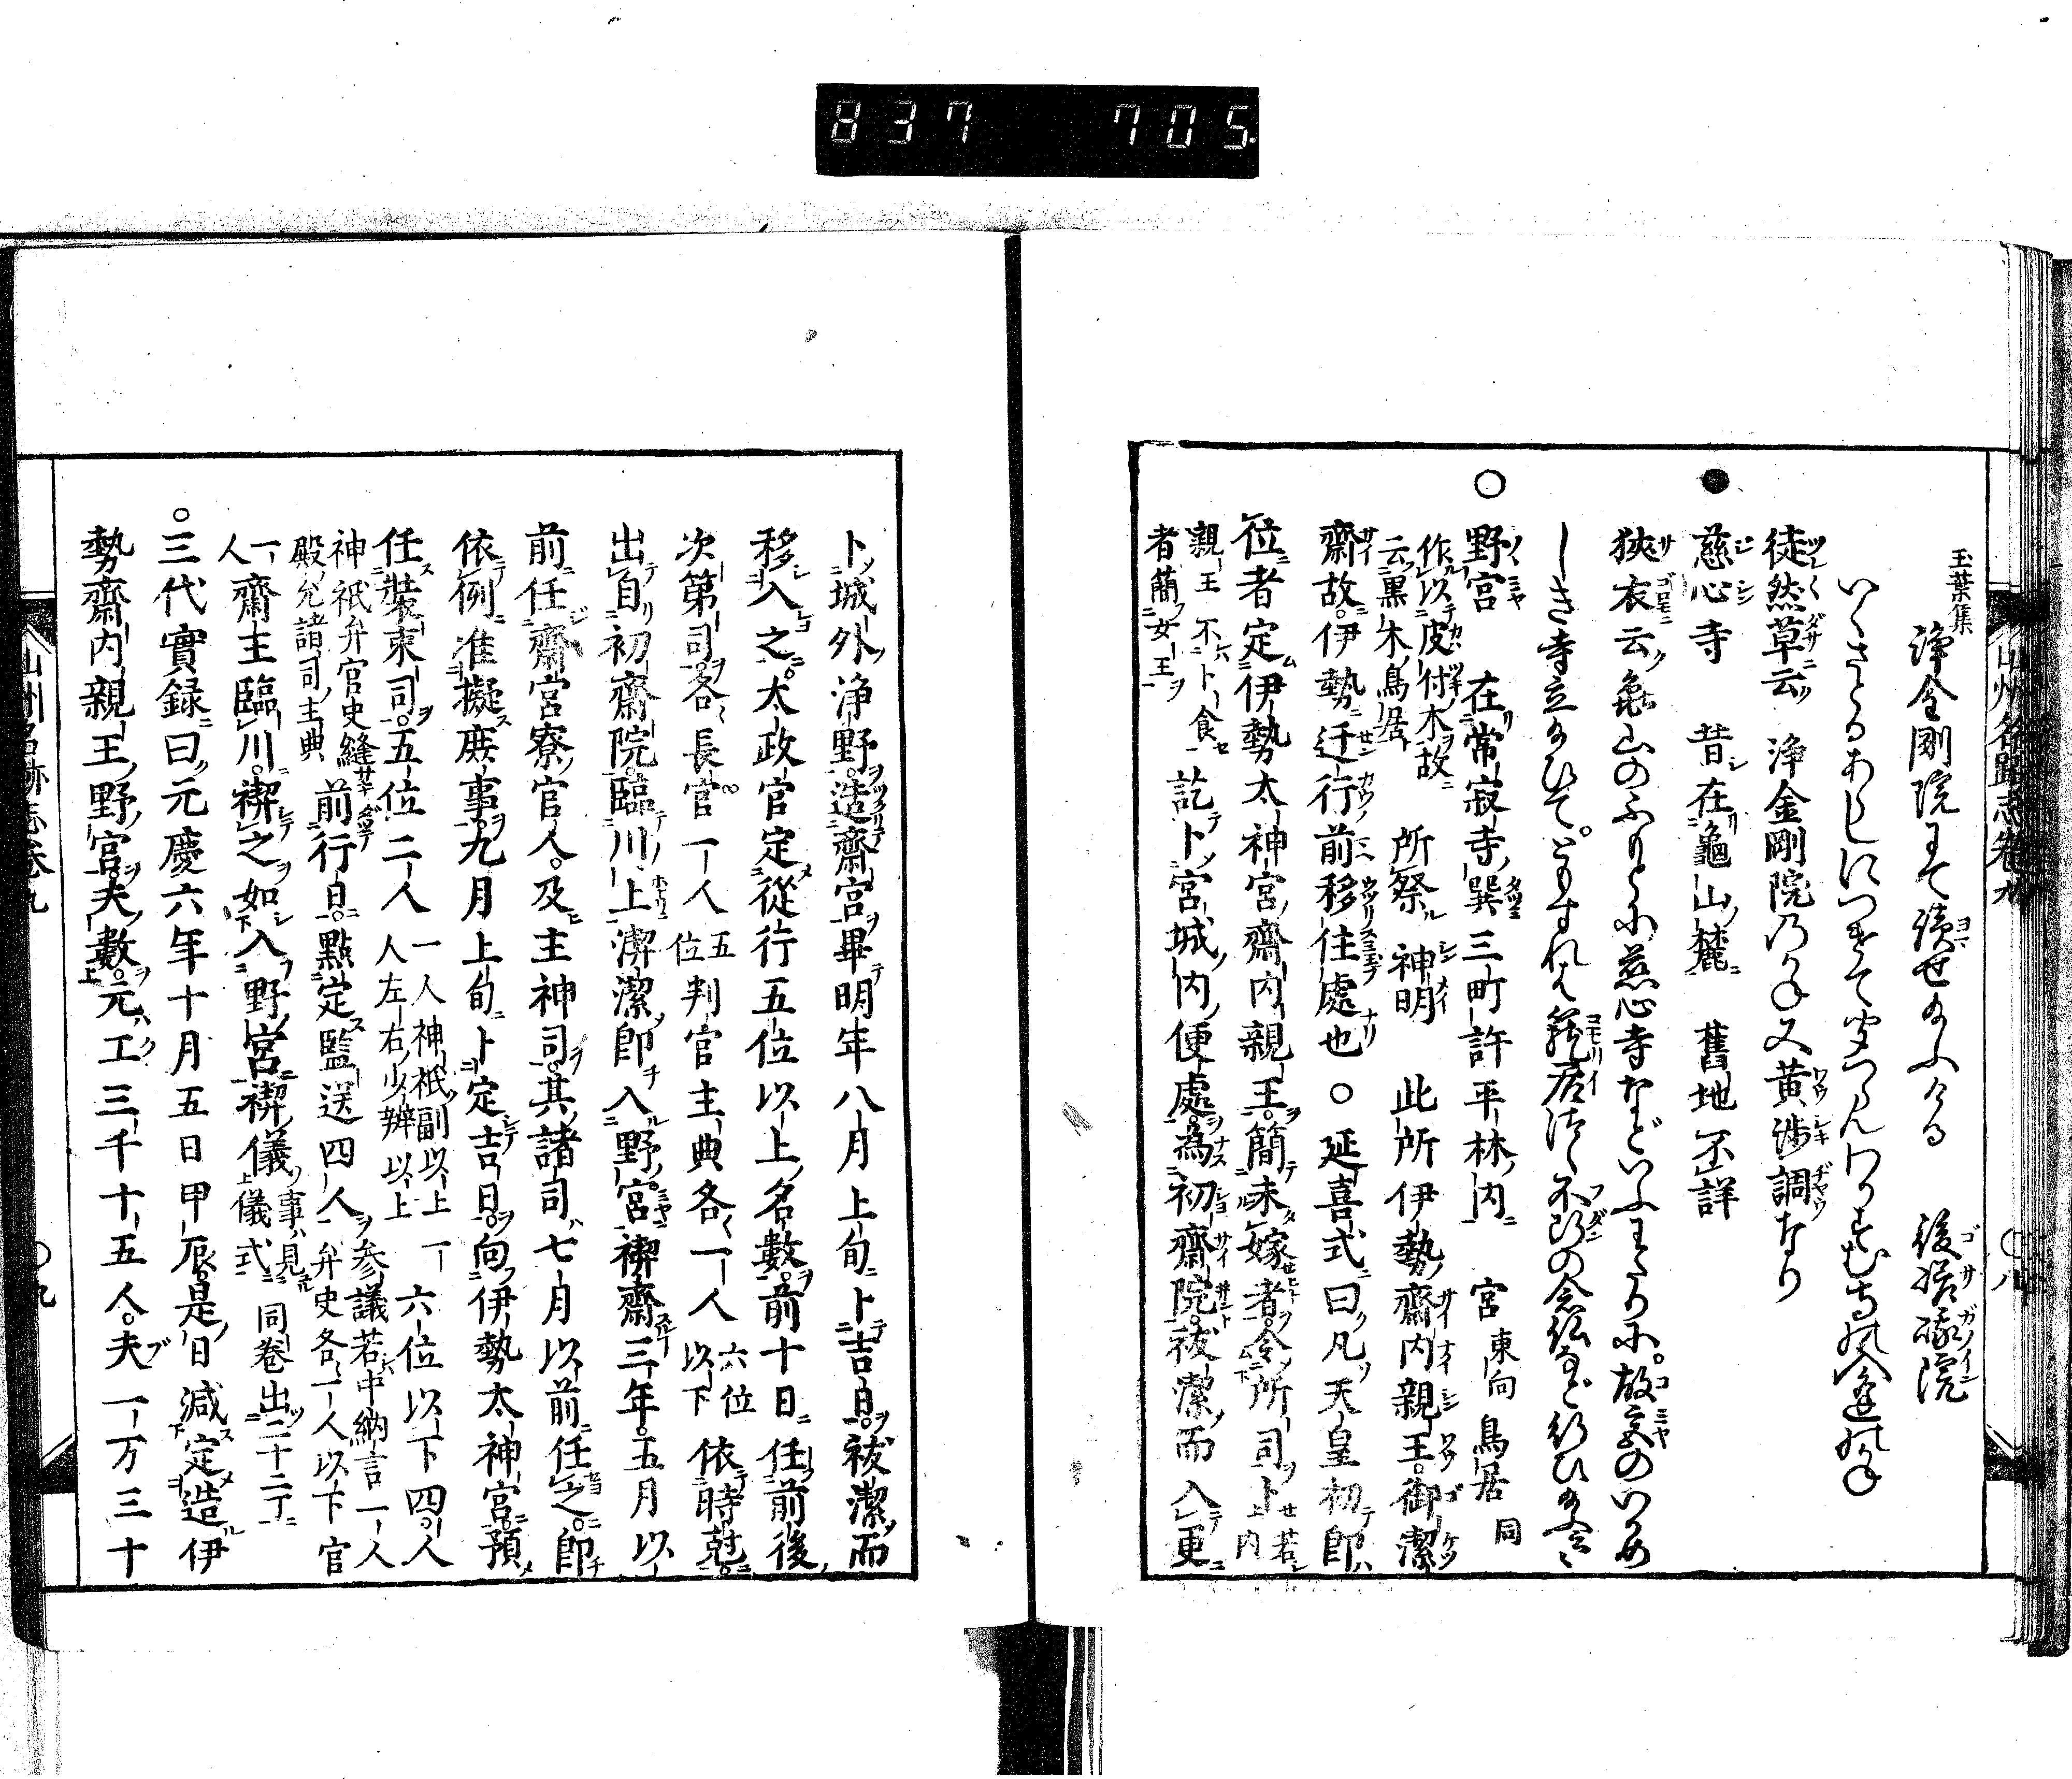 837 705
山州名跡志巻九
〇八
玉葉集
浄金剛院にて讀せ給ふける 後嵯峨院
徒然草云 浄金剛院乃鐘又黄渉調なり
● 慈心寺 昔在龜山麓 舊地不詳
狹衣云龜山のふもとに慈心寺などいふわたりに。故宮のいかめ
しき寺立給ひて。ともすれば籠居つゝ不断の念仏など行ひ給云云
○ 野宮 在常寂寺巽三町許平林内 宮東向 鳥居同
作以皮付木故云黒木鳥居 所祭 神明 此所伊勢齋内親王。御潔
齋故。伊勢迁行前移住處也 ○延喜式曰凡天皇初即
位者定伊勢太神宮齋内親王。簡未嫁者。令所司卜若内
親王不卜食訖卜宮城内便處。為初齋院。祓潔而入更
者簡女王
卜城外浄野。造齋宮畢明年八月上旬卜吉日。祓潔而
移入之。太政官定從行五位以上名數。前十日任前後
次第司。各長官一人五位判官主典各一人六位以下依時尅。
出自初齋院。臨川上潔潔即入野宮。禊齋三年。五月以
前任齋宮寮官人。及主神司。其諸司七月以前任之。即
依例准擬庶事。九月上旬卜定吉日。向伊勢太神宮。預
任裝束司。五位二人一人神祇副以上一人左右少辨以上六位以下四人
神祇弁官史縫殿允諸司主典前行日。點定監送四人参議若中納言一人弁史各一人以下官
人一齋主臨川。禊之如入野宮禊儀事見儀式同巻出二十二丁
○三代實録曰元慶六年十月五日甲辰。是日減定造伊
勢齋内親王野宮。夫數。元工三千十五人。夫一万三十
山州名跡志巻九
〇九